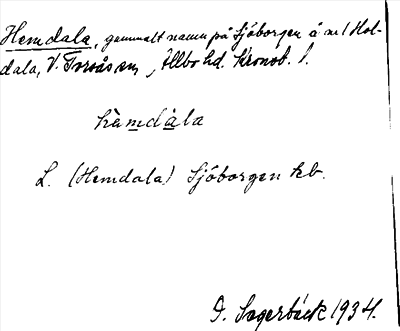 Hemdala, gammalt namn på Sjöborgen å m/ Hol-
dala, V. Torsås sn, Allbo hd. Kronob. l.
hæmdàla
L. (Hemdala) Sjöborgen kb.
G. Sagerbäck 1934.